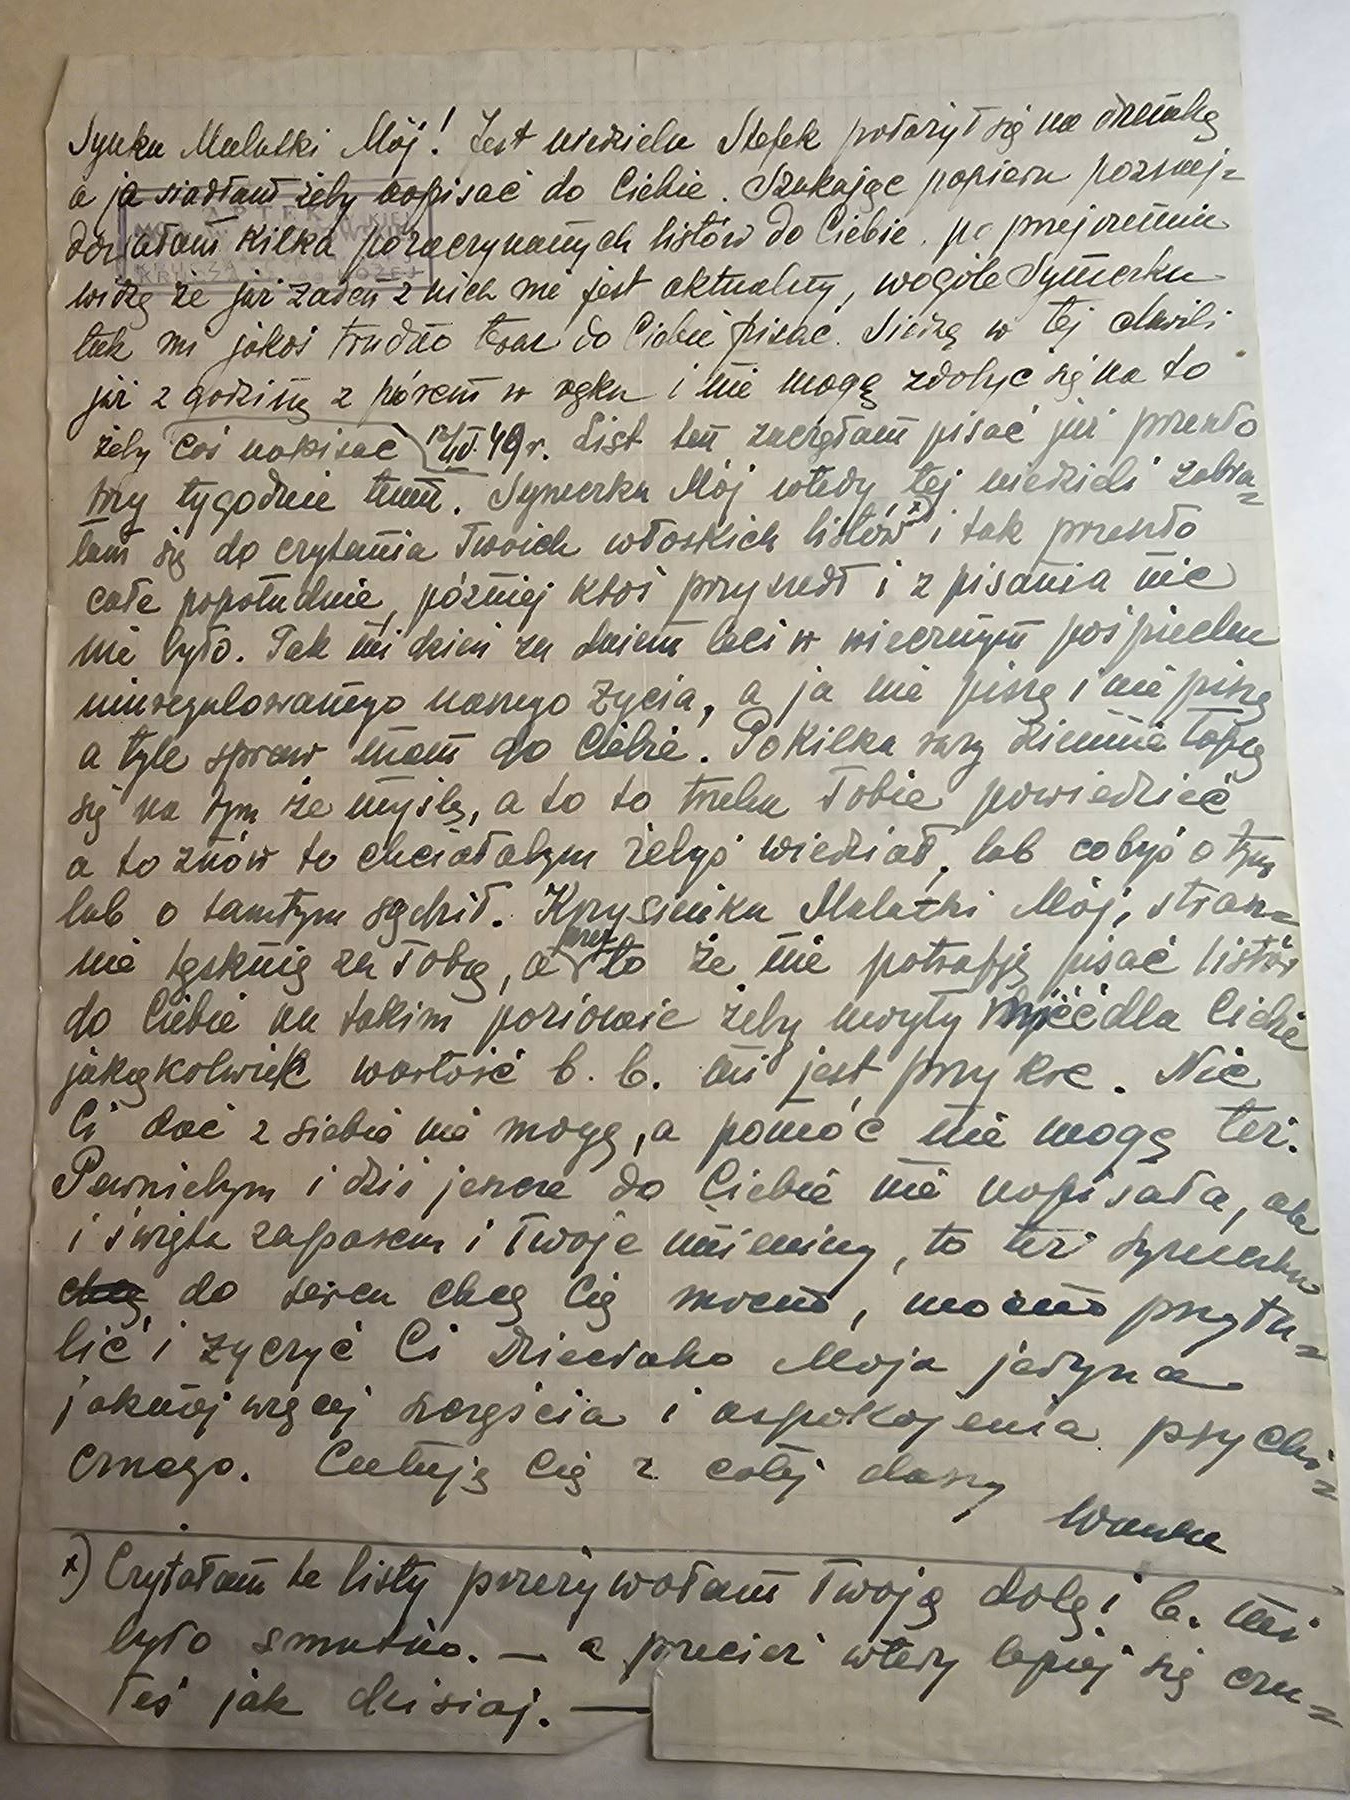 Synku Malutki Mój! Jest niedziela Stefek położył się na drzemkę
a ja siadłam żeby napisać do Ciebie. Szukając papieru poznaj-
dowałam kilka pozaczynanych listów do Ciebie. po przejrzeniu
widzę że już żaden z nich nie jest aktualny, wogóle Synuerku
tak mi jakoś trudno teraz do Ciebie pisać. Siedzę w tej chwili
już z godzinę z piórem w ręku i nie mogę zdobyć się na to
żeby coś napisać 12/IV. 49 r. List ten zaczęłam pisać już przeszło
trzy tygodnie temu. Synuerku Mój wtedy tej niedzieli zabra-
łam się do czytania Twoich włoskich listów x) i tak przeszło
całe popołudnie, później ktoś przyszedł i z pisania nic
nie było. Tak mi dzień za dniem leci w wiecznym pośpiechu
nieuregulowanego naszego życia, a ja nie piszę i nie piszę
a tyle spraw mam do Ciebie. Po kilka razy dziennie łapię
się na tym że myślę, a to to trzeba Tobie powiedzieć
a to znów to chciałabym żebyś wiedział, lub cobyś o tym
lub o tamtym sądził. Krzysieńku Malutki Mój, strasz-
nie tęsknię za Tobą, a przez to że nie potrafię pisać listów
do Ciebie na takim poziomie żeby mogły mieć dla Ciebie
jakąkolwiek wartość b. b. mi jest przykro. Nic
Ci dać z siebie nie mogę, a pomóc nie mogę też.
Pewniebym i dziś jeszcze do Ciebie nie napisała, ale
i święta zapasem i Twoje imieniny, to też Synuerku
chcę do serca chcę Cię mocno, mocno przytu-
lić i życzyć Ci Dzieciako Moja jedyna
jaknajwięcej szczęścia i uspokojenia psychi-
cznego. Całuję Cię z całej duszy
Wanka
x) Czytałam te listy przeżywałam Twoją dolę i b. mi
było smutno. — a przecież wtedy lepiej się czu-
łeś jak dzisiaj. —